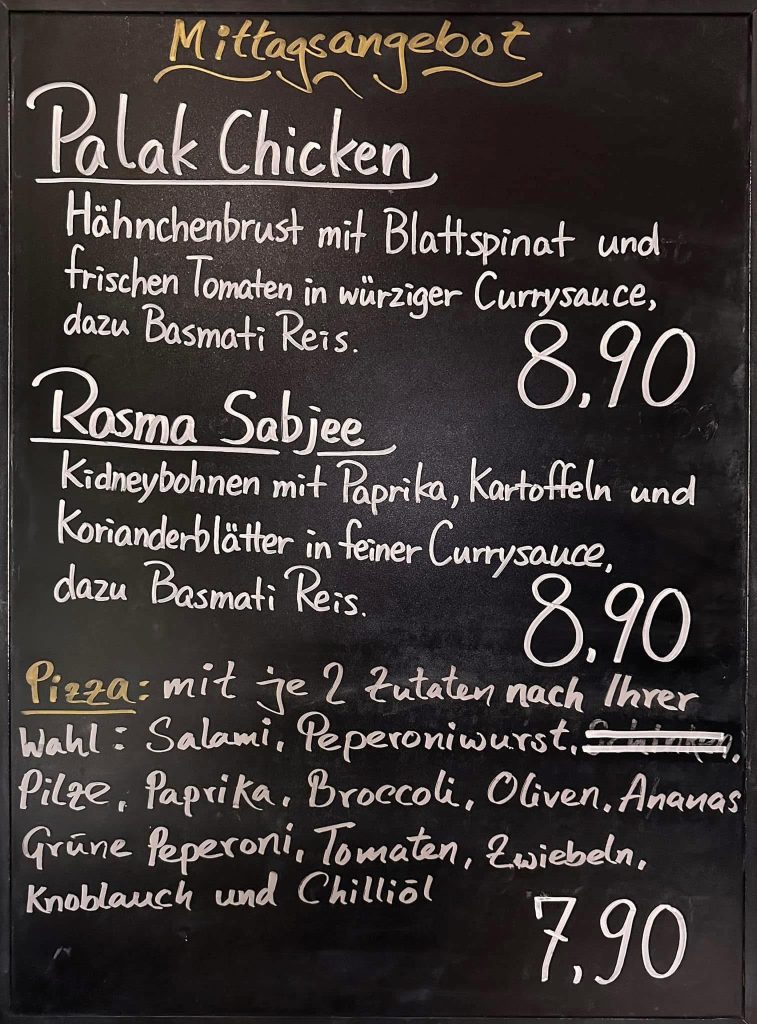 Mittagsangebot
Palak Chicken
Hähnchenbrust mit Blattspinat und
frischen Tomaten in würziger Currysauce,
dazu Basmati Reis.
8,90
Rasma Sabjee
Kidneybohnen mit Paprika, Kartoffeln und
Korianderblätter in feiner Currysauce,
dazu Basmati Reis.
8,90
Pizza: mit je 2 Zutaten nach Ihrer
Wahl: Salami, Peperoniwurst,
Pilze, Paprika, Broccoli, Oliven, Ananas
Grüne Peperoni, Tomaten, Zwiebeln,
Knoblauch und Chilliöl
7,90